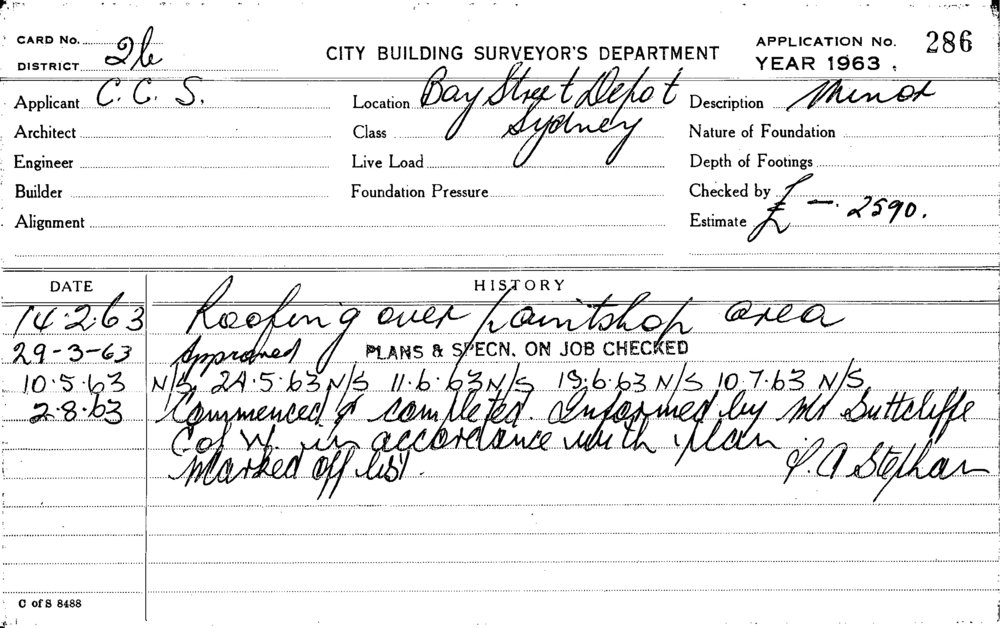 CARD No. 26
DISTRICT
CITY BUILDING SURVEYOR'S DEPARTMENT
APPLICATION No. 286
YEAR 1963
Applicant C. C. S.
Location Bay Street Depot
Sydney
Description Minor
Architect
Class
Nature of Foundation
Engineer
Live Load
Depth of Footings
Builder
Foundation Pressure
Checked by
Alignment
Estimate £ —. 2590.
DATE HISTORY
14.2.63 Roofing over paintshop area
29-3-63 Approved PLANS & SPECN. ON JOB CHECKED
10.5.63 N/S 24.5.63 N/S 11.6.63 N/S 19.6.63 N/S 10.7.63 N/S
2.8.63 Commenced & completed. Informed by Mr Suttcliffe
C of W. in accordance with plan.
Marked off list. P. A Stephan
C of S 8488